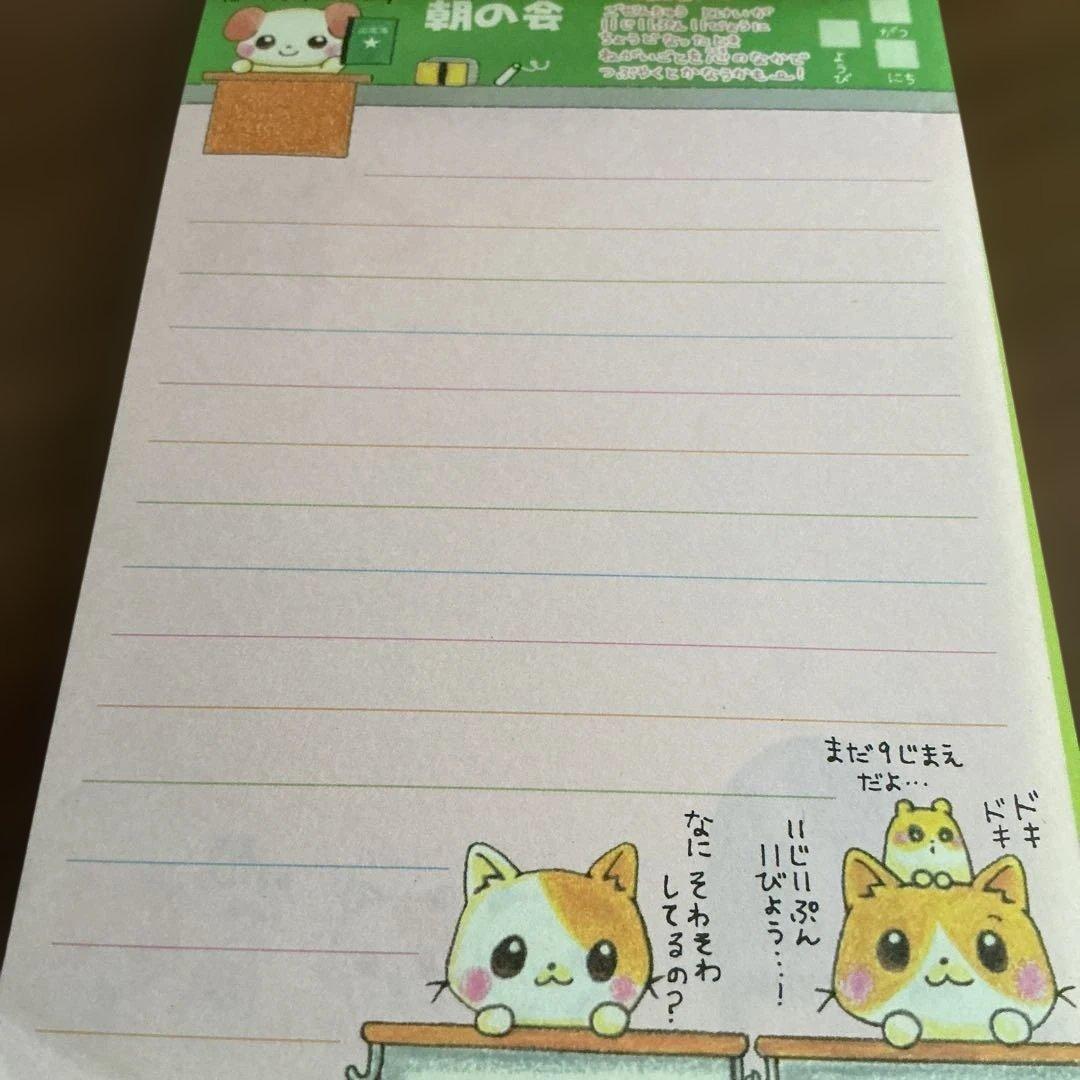 朝の会
ごぜんちゅう とけいが
11じ11ぷん11びょうに
ちょうどなったとき
ねがいごとを心のなかで
つぶやくとかなうかも…!
がつ
にち
ようび
まだ9じまえ
だよ…
ドキ
ドキ
11じ11ぷん
11びょう...!
なに そわそわ
してるの?